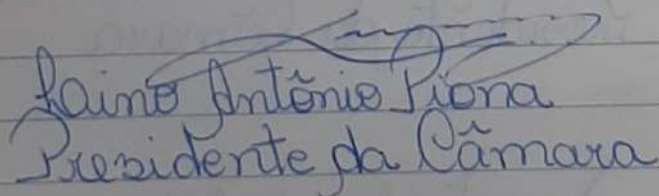 Laino Antônio Piona
Presidente da Câmara